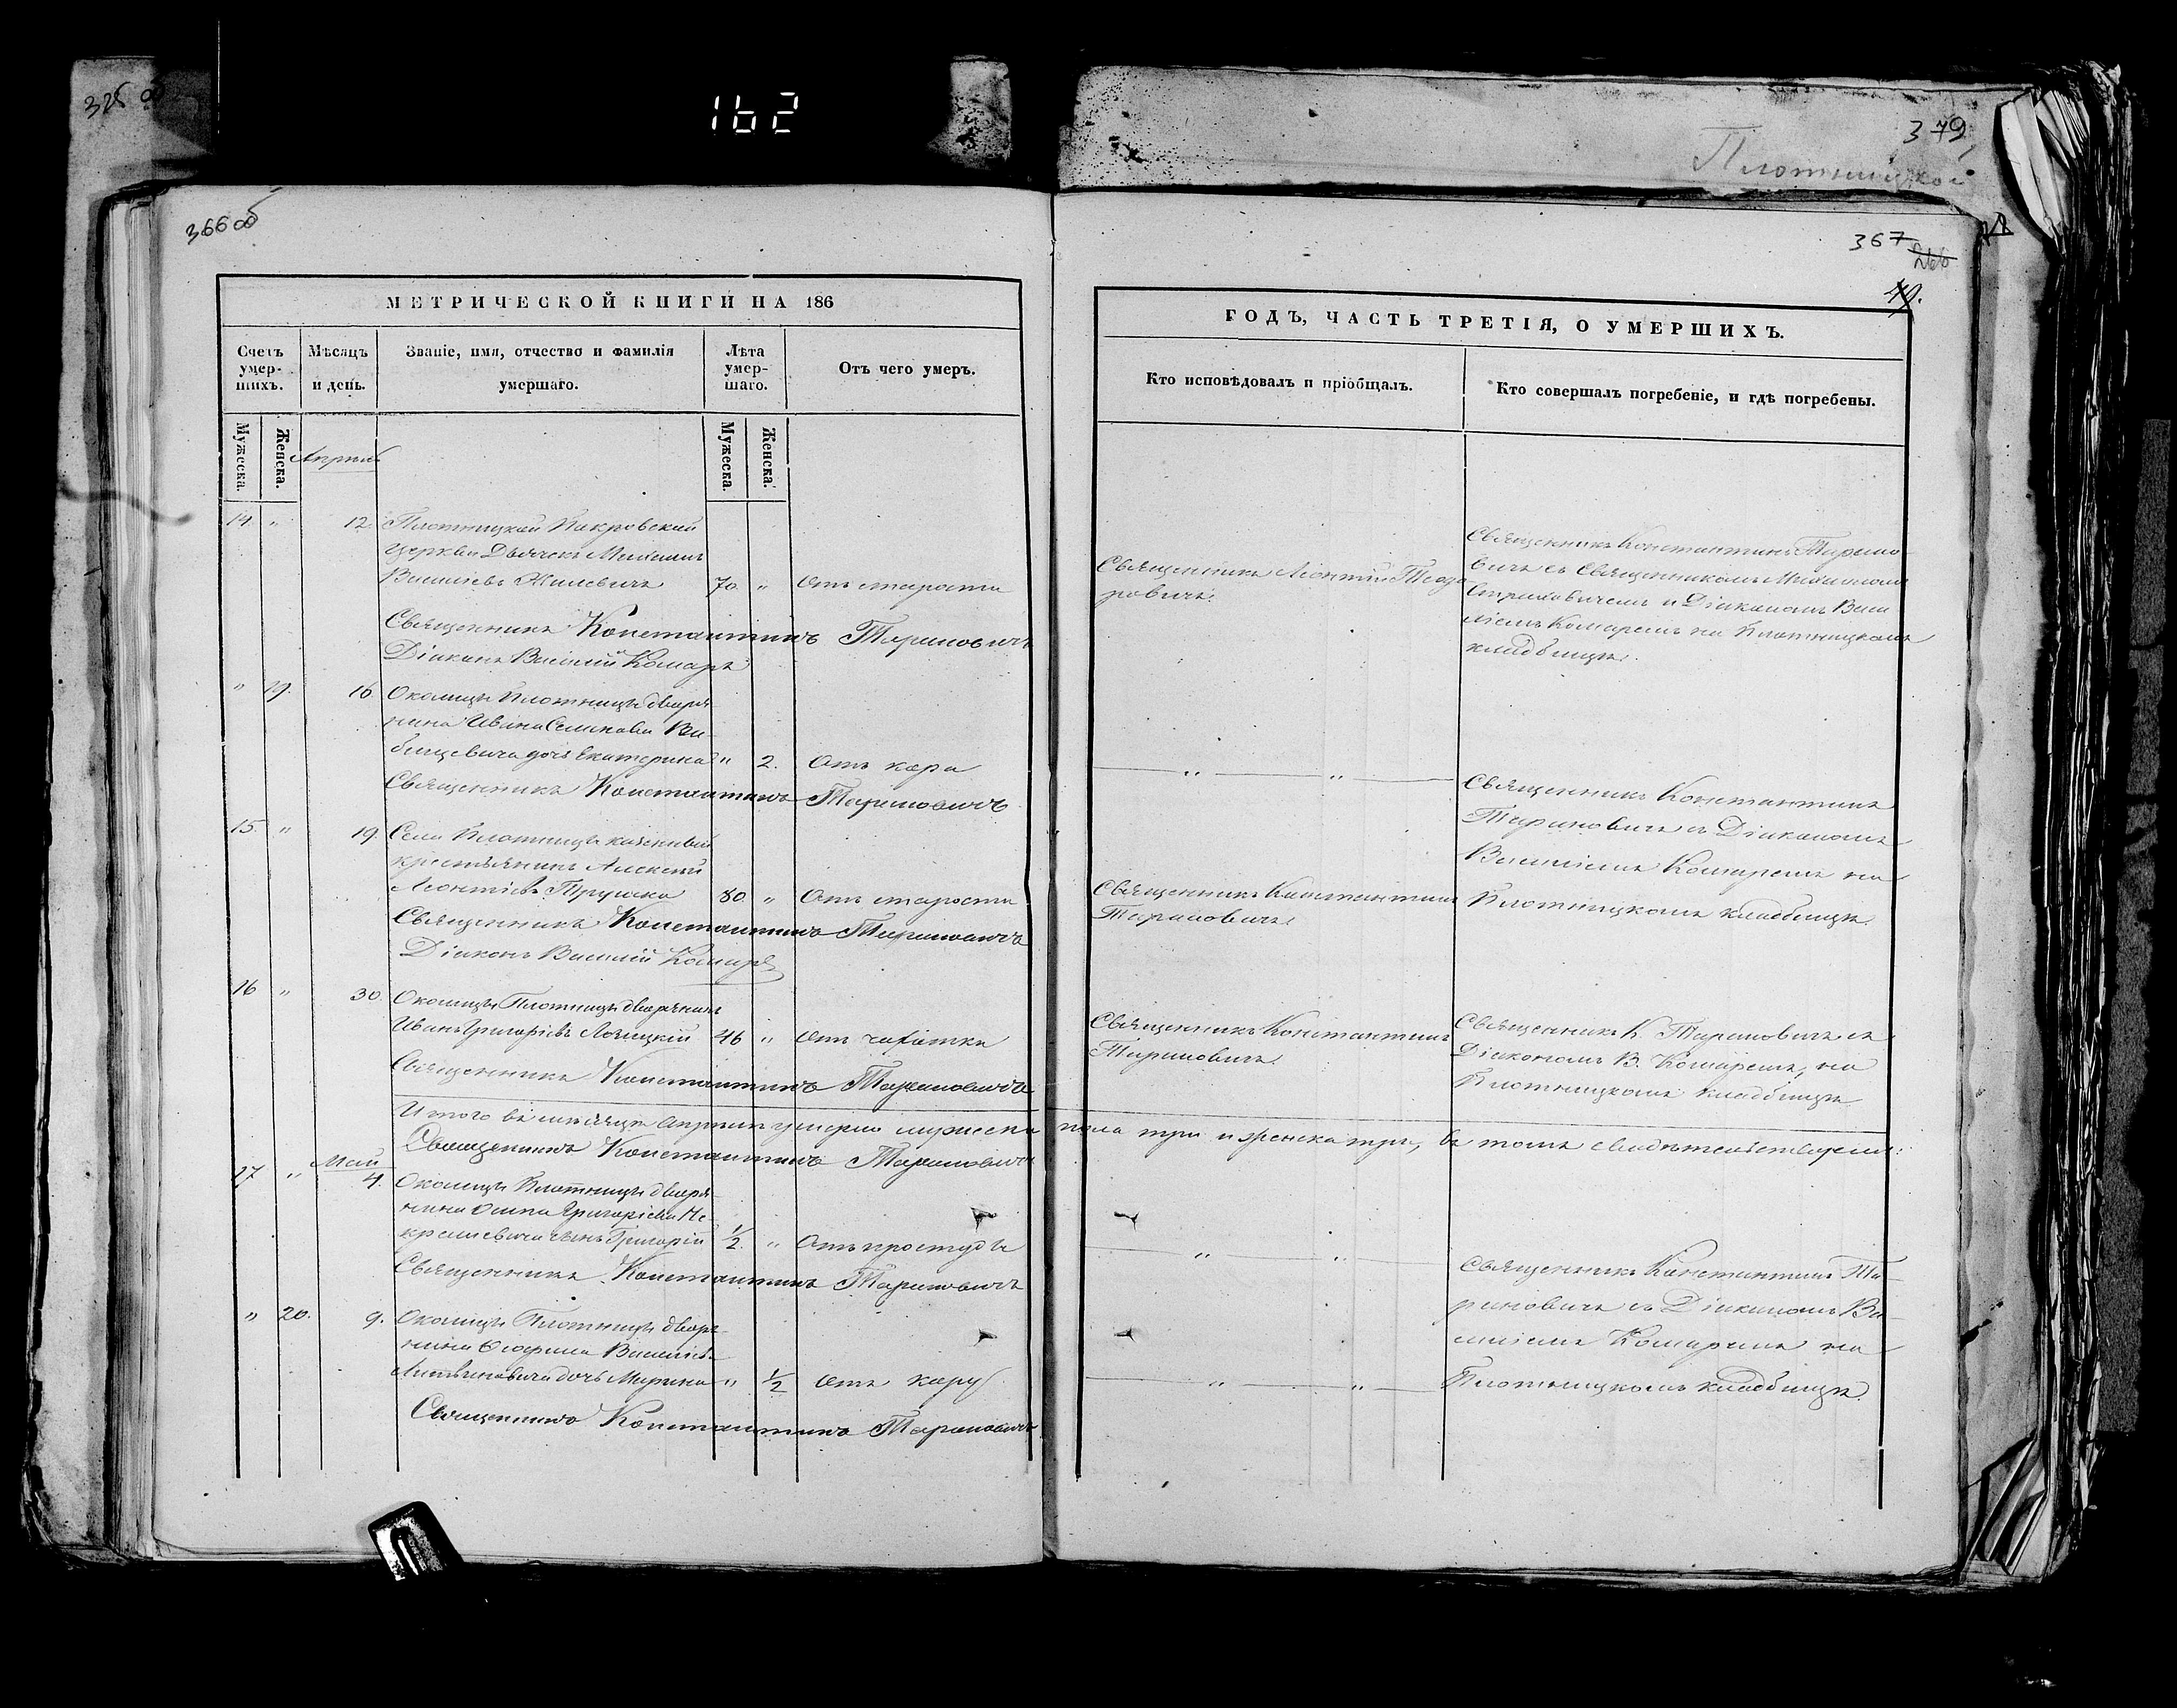 162
325 об
379
Плотницкой
366 об
367
МЕТРИЧЕСКОЙ КНИГИ НА 186
Счетъ умер-шихъ.
Мѣсяцъ и день.
Званіе, имя, отчество и фамилія умершаго.
Лѣта умер-шаго.
Отъ чего умеръ.
Мужеска.
Женска.
Мужеска.
Женска.
Апрѣль
14. " 12. Плотницкой Покровской
церкви Дьячекъ Михаилъ
Василіевъ 70. " Отъ старости
Священникъ Константинъ Тарановичъ
Діаконъ Василій Комаръ
" 19. 16. Околицы Плотницы дворя-
нина Ивана Семенова Ва-
бищевича дочь Екатерина " 2. Отъ кора
Священникъ Константинъ Тарановичъ
15. " 19. Села Плотницы казенный
крестьянинъ Алексѣй
Леонтіевъ Трушко 80. " Отъ старости
Священникъ Константинъ Тарановичъ
Діаконъ Василій Комаръ
16 " 30. Околицы Плотницы дворянинъ
Иванъ Григоріевъ 46 " Отъ чахотки
Священникъ Константинъ Тарановичъ
Итого въ мѣсяцѣ Апрѣлѣ умерло мужеска пола три и женска три, въ томъ свидѣтельствуемъ:
Священникъ Константинъ Тарановичъ
Май
17 " 4. Околицы Плотницы дворя-
нина Осипа Григоріева Не-
крашевича сынъ Григорій 1/2 " Отъ простуды
Священникъ Константинъ Тарановичъ
" 20. 9. Околицы Плотницы дворя-
нина Василіева
Литвиновича дочь Марина " 1/2 Отъ кору
Священникъ Константинъ Тарановичъ
49.
ГОДЪ, ЧАСТЬ ТРЕТІЯ, О УМЕРШИХЪ.
Кто исповѣдовалъ и пріобщалъ.
Кто совершалъ погребеніе, и гдѣ погребены.
Священникъ Леонтій Теодо-
ровичъ.
Священникъ Константинъ Тарано-
вичъ съ Священникомъ Михаиломъ
и Діакономъ Васи-
ліемъ Комаремъ на Плотницкомъ
кладбищѣ.
" "
Священникъ Константинъ
Тарановичъ съ Діакономъ
Василіемъ Комаремъ на
Плотницкомъ кладбищѣ.
Священникъ Константинъ
Тарановичъ
Священникъ Константинъ
Тарановичъ
Священникъ К. Тарановичъ съ
Діакономъ В. Комаремъ, на
Плотницкомъ кладбищѣ
" "
Священникъ Константинъ Та-
рановичъ съ Діакономъ Ва-
силіемъ Комаремъ на
" "
Плотницкомъ кладбищѣ.